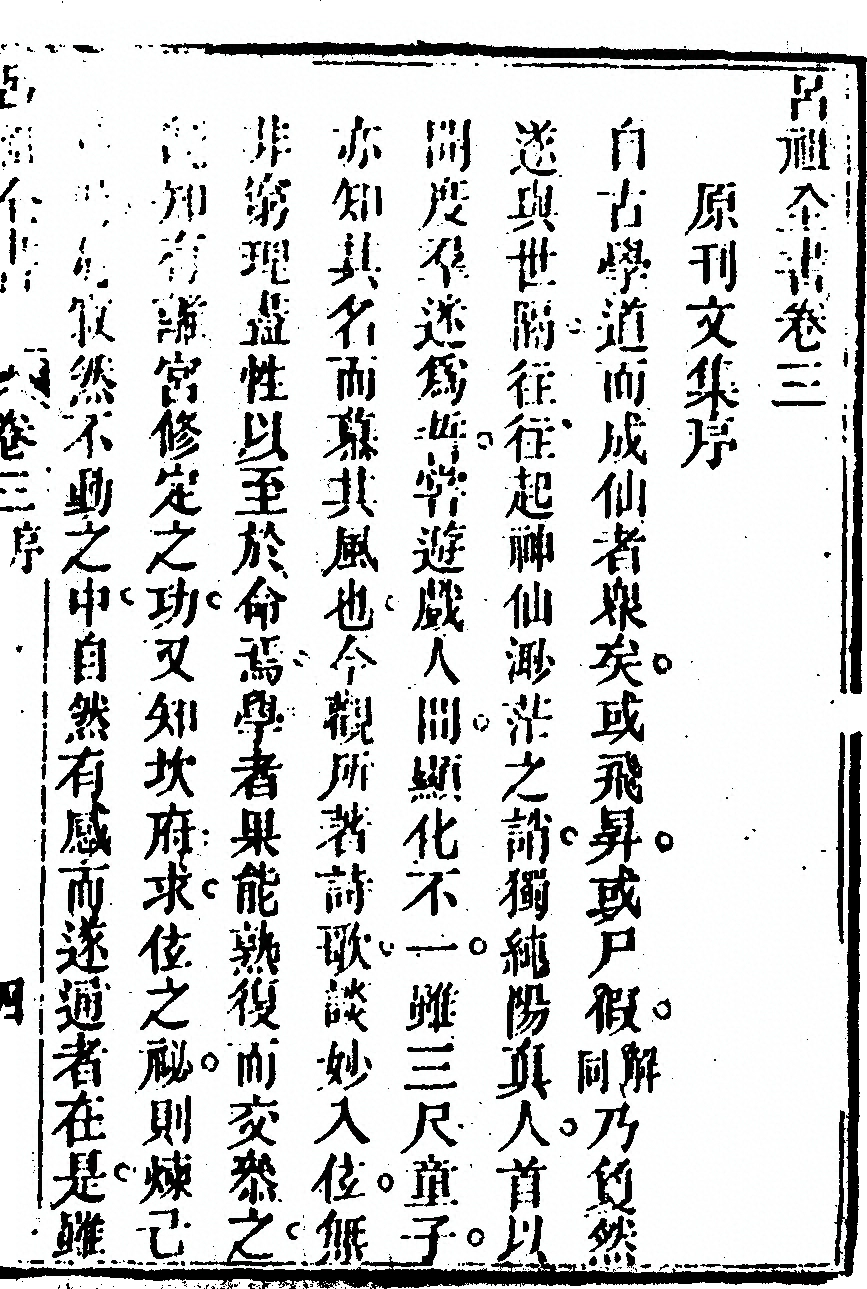 呂祖全書卷三
原刊文集序
自古學道而成仙者衆矣或飛昇或尸假解同乃夐然
遂與世隔往往起神仙渺茫之誚獨純陽真人首以
開度羣迷爲誓嘗遊戲人間顯化不一雖三尺童子
亦知其名而慕其風也今觀所著詩歌談妙入位無
非窮理盡性以至於命焉學者果能熟復而交叅之
知有離宮修定之功又知坎府求位之祕則煉己
寂然不動之中自然有感而遂通者在是雖
呂祖全書
卷三
序
四